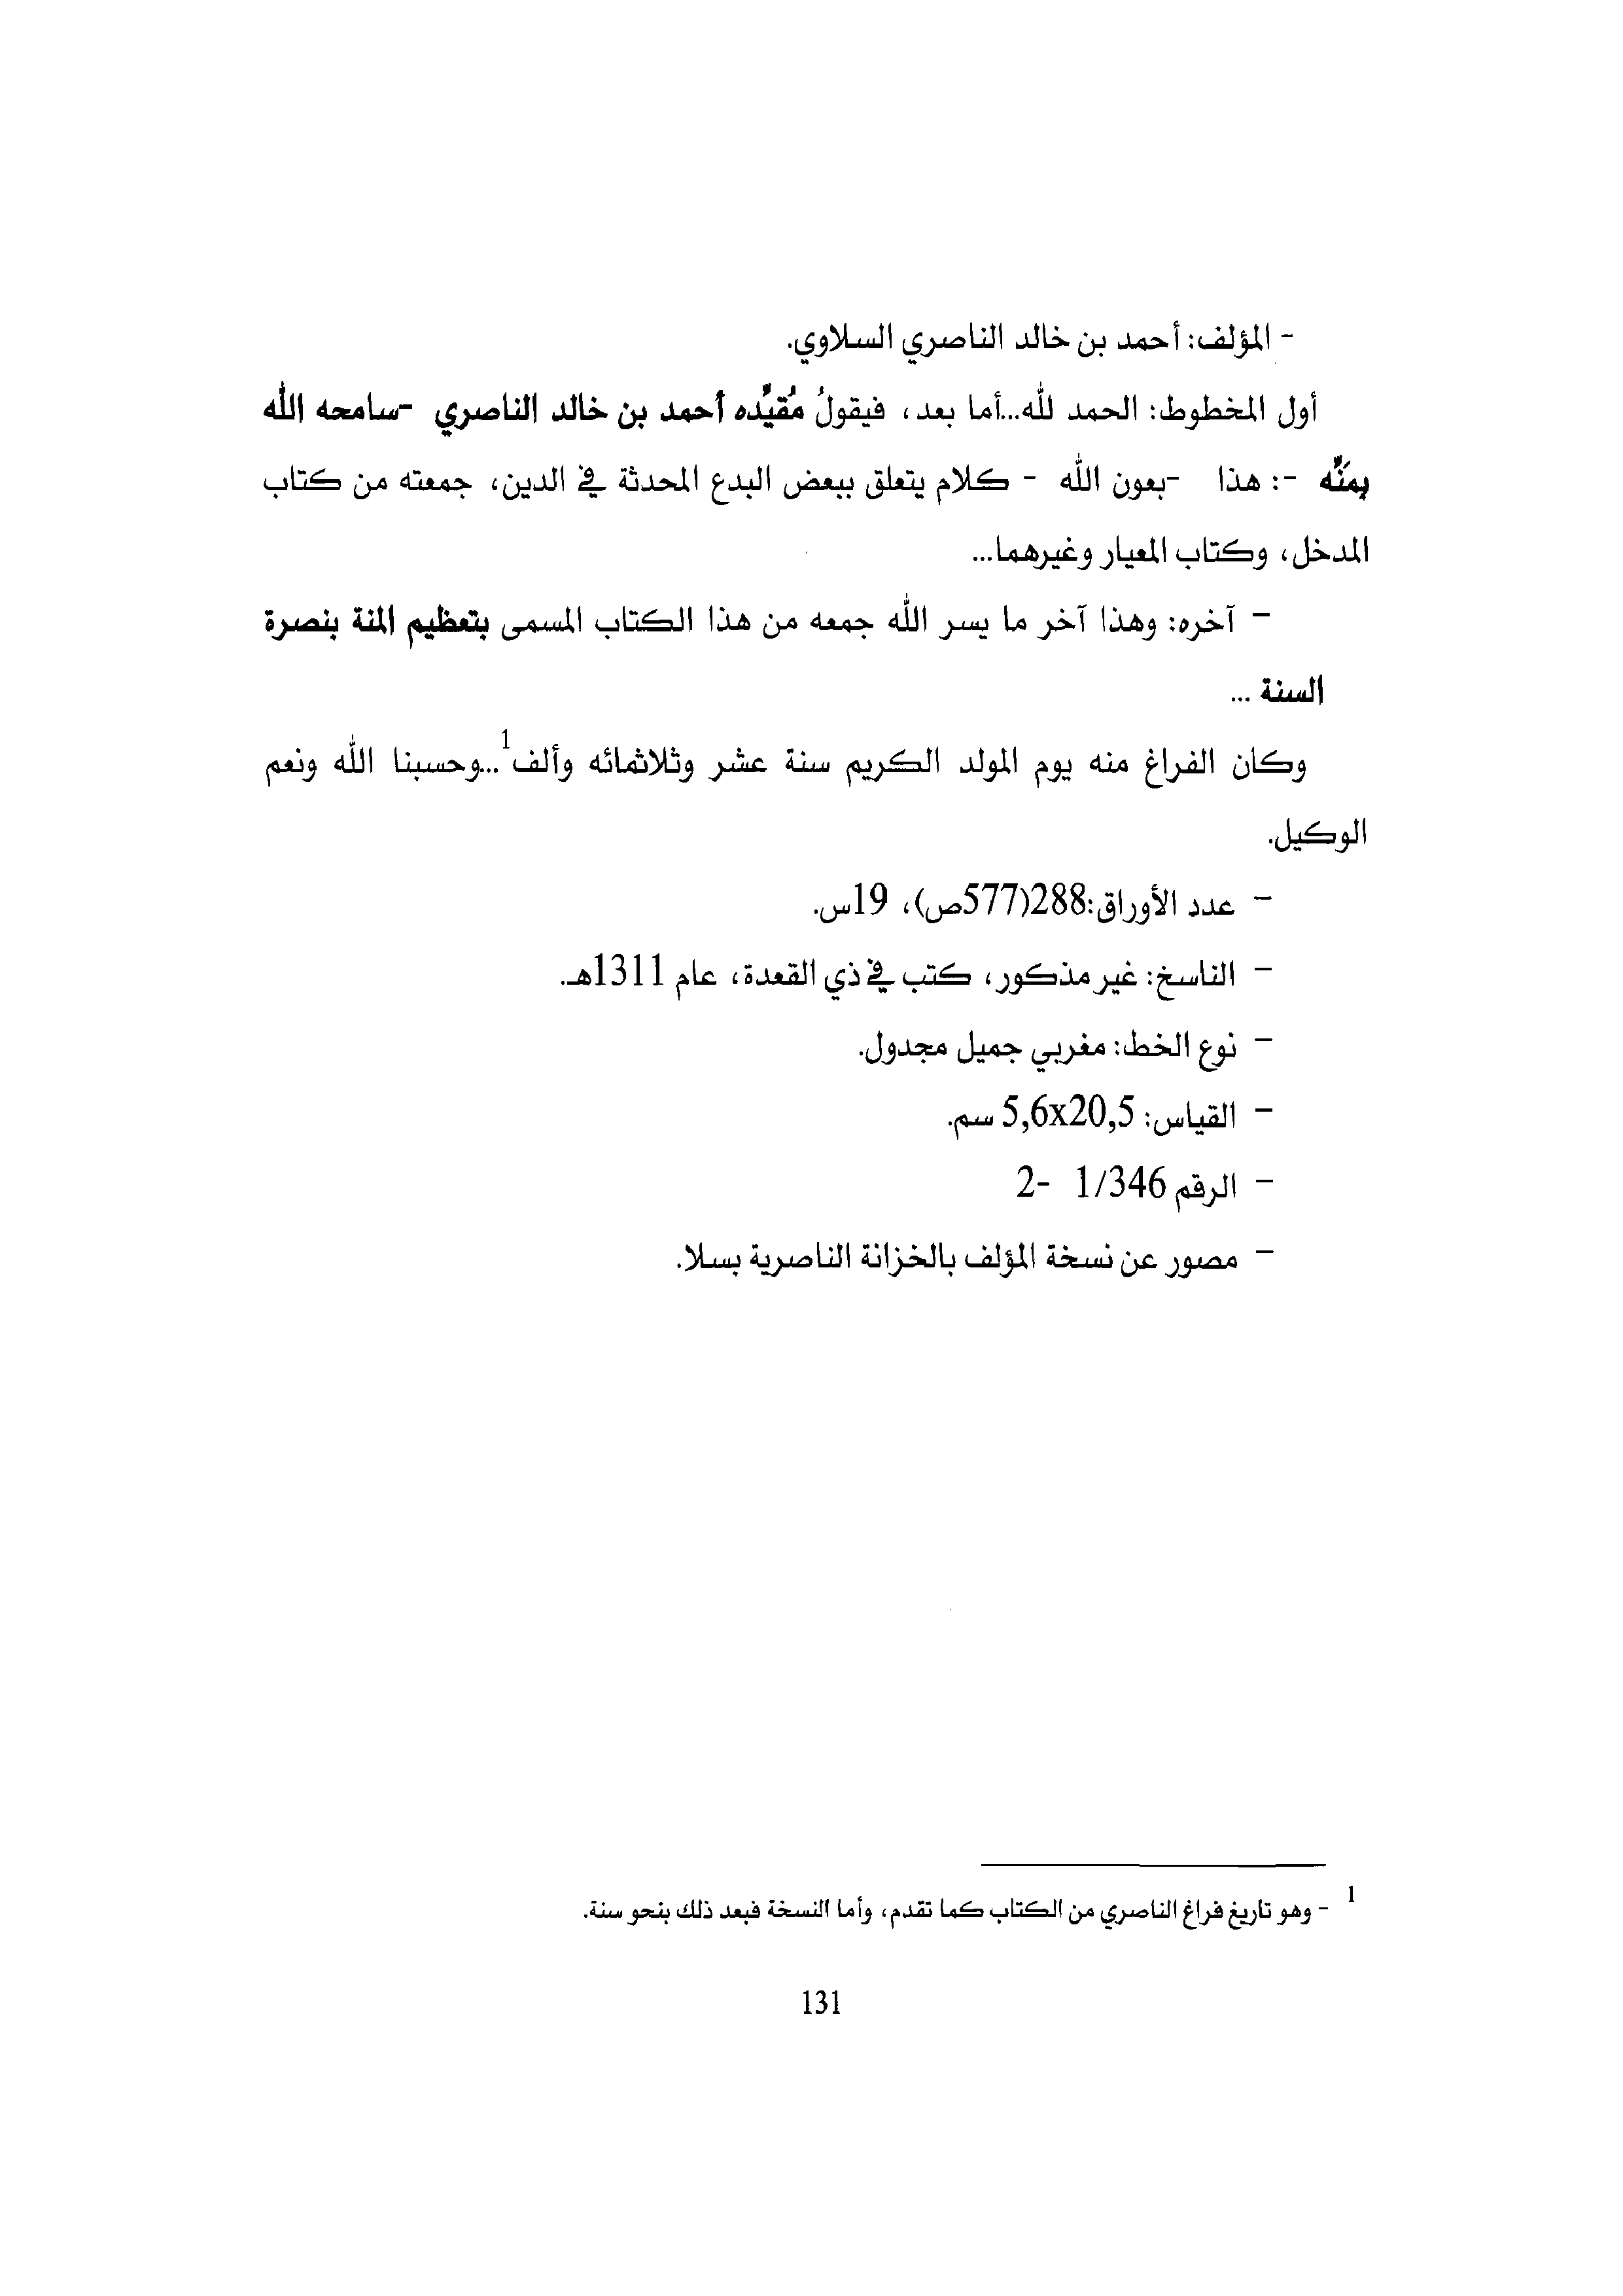 - المؤلف: أحمد بن خالد الناصري السلاوي.
أول المخطوط: الحمد لله...أما بعد، فيقولُ مُقيِّده أحمد بن خالد الناصري -سامحه الله
بمَنِّه -: هذا -بعون الله - كلام يتعلق ببعض البدع المحدثة في الدين، جمعته من كتاب
المدخل، وكتاب المعيار وغيرهما...
- آخره: وهذا آخر ما يسر الله جمعه من هذا الكتاب المسمى بتعظيم المنة بنصرة
السنة ...
وكان الفراغ منه يوم المولد الكريم سنة عشر وثلاثمائه وألف1...وحسبنا الله ونعم
الوكيل.
- عدد الأوراق:288(577ص)، 19س.
- الناسخ: غير مذكور، كتب في ذي القعدة، عام 1311هـ.
- نوع الخط: مغربي جميل مجدول.
- القياس: 5,6x20,5 سم.
- الرقم 1/346 -2
- مصور عن نسخة المؤلف بالخزانة الناصرية بسلا.
1 - وهو تاريخ فراغ الناصري من الكتاب كما تقدم، وأما النسخة فبعد ذلك بنحو سنة.
131